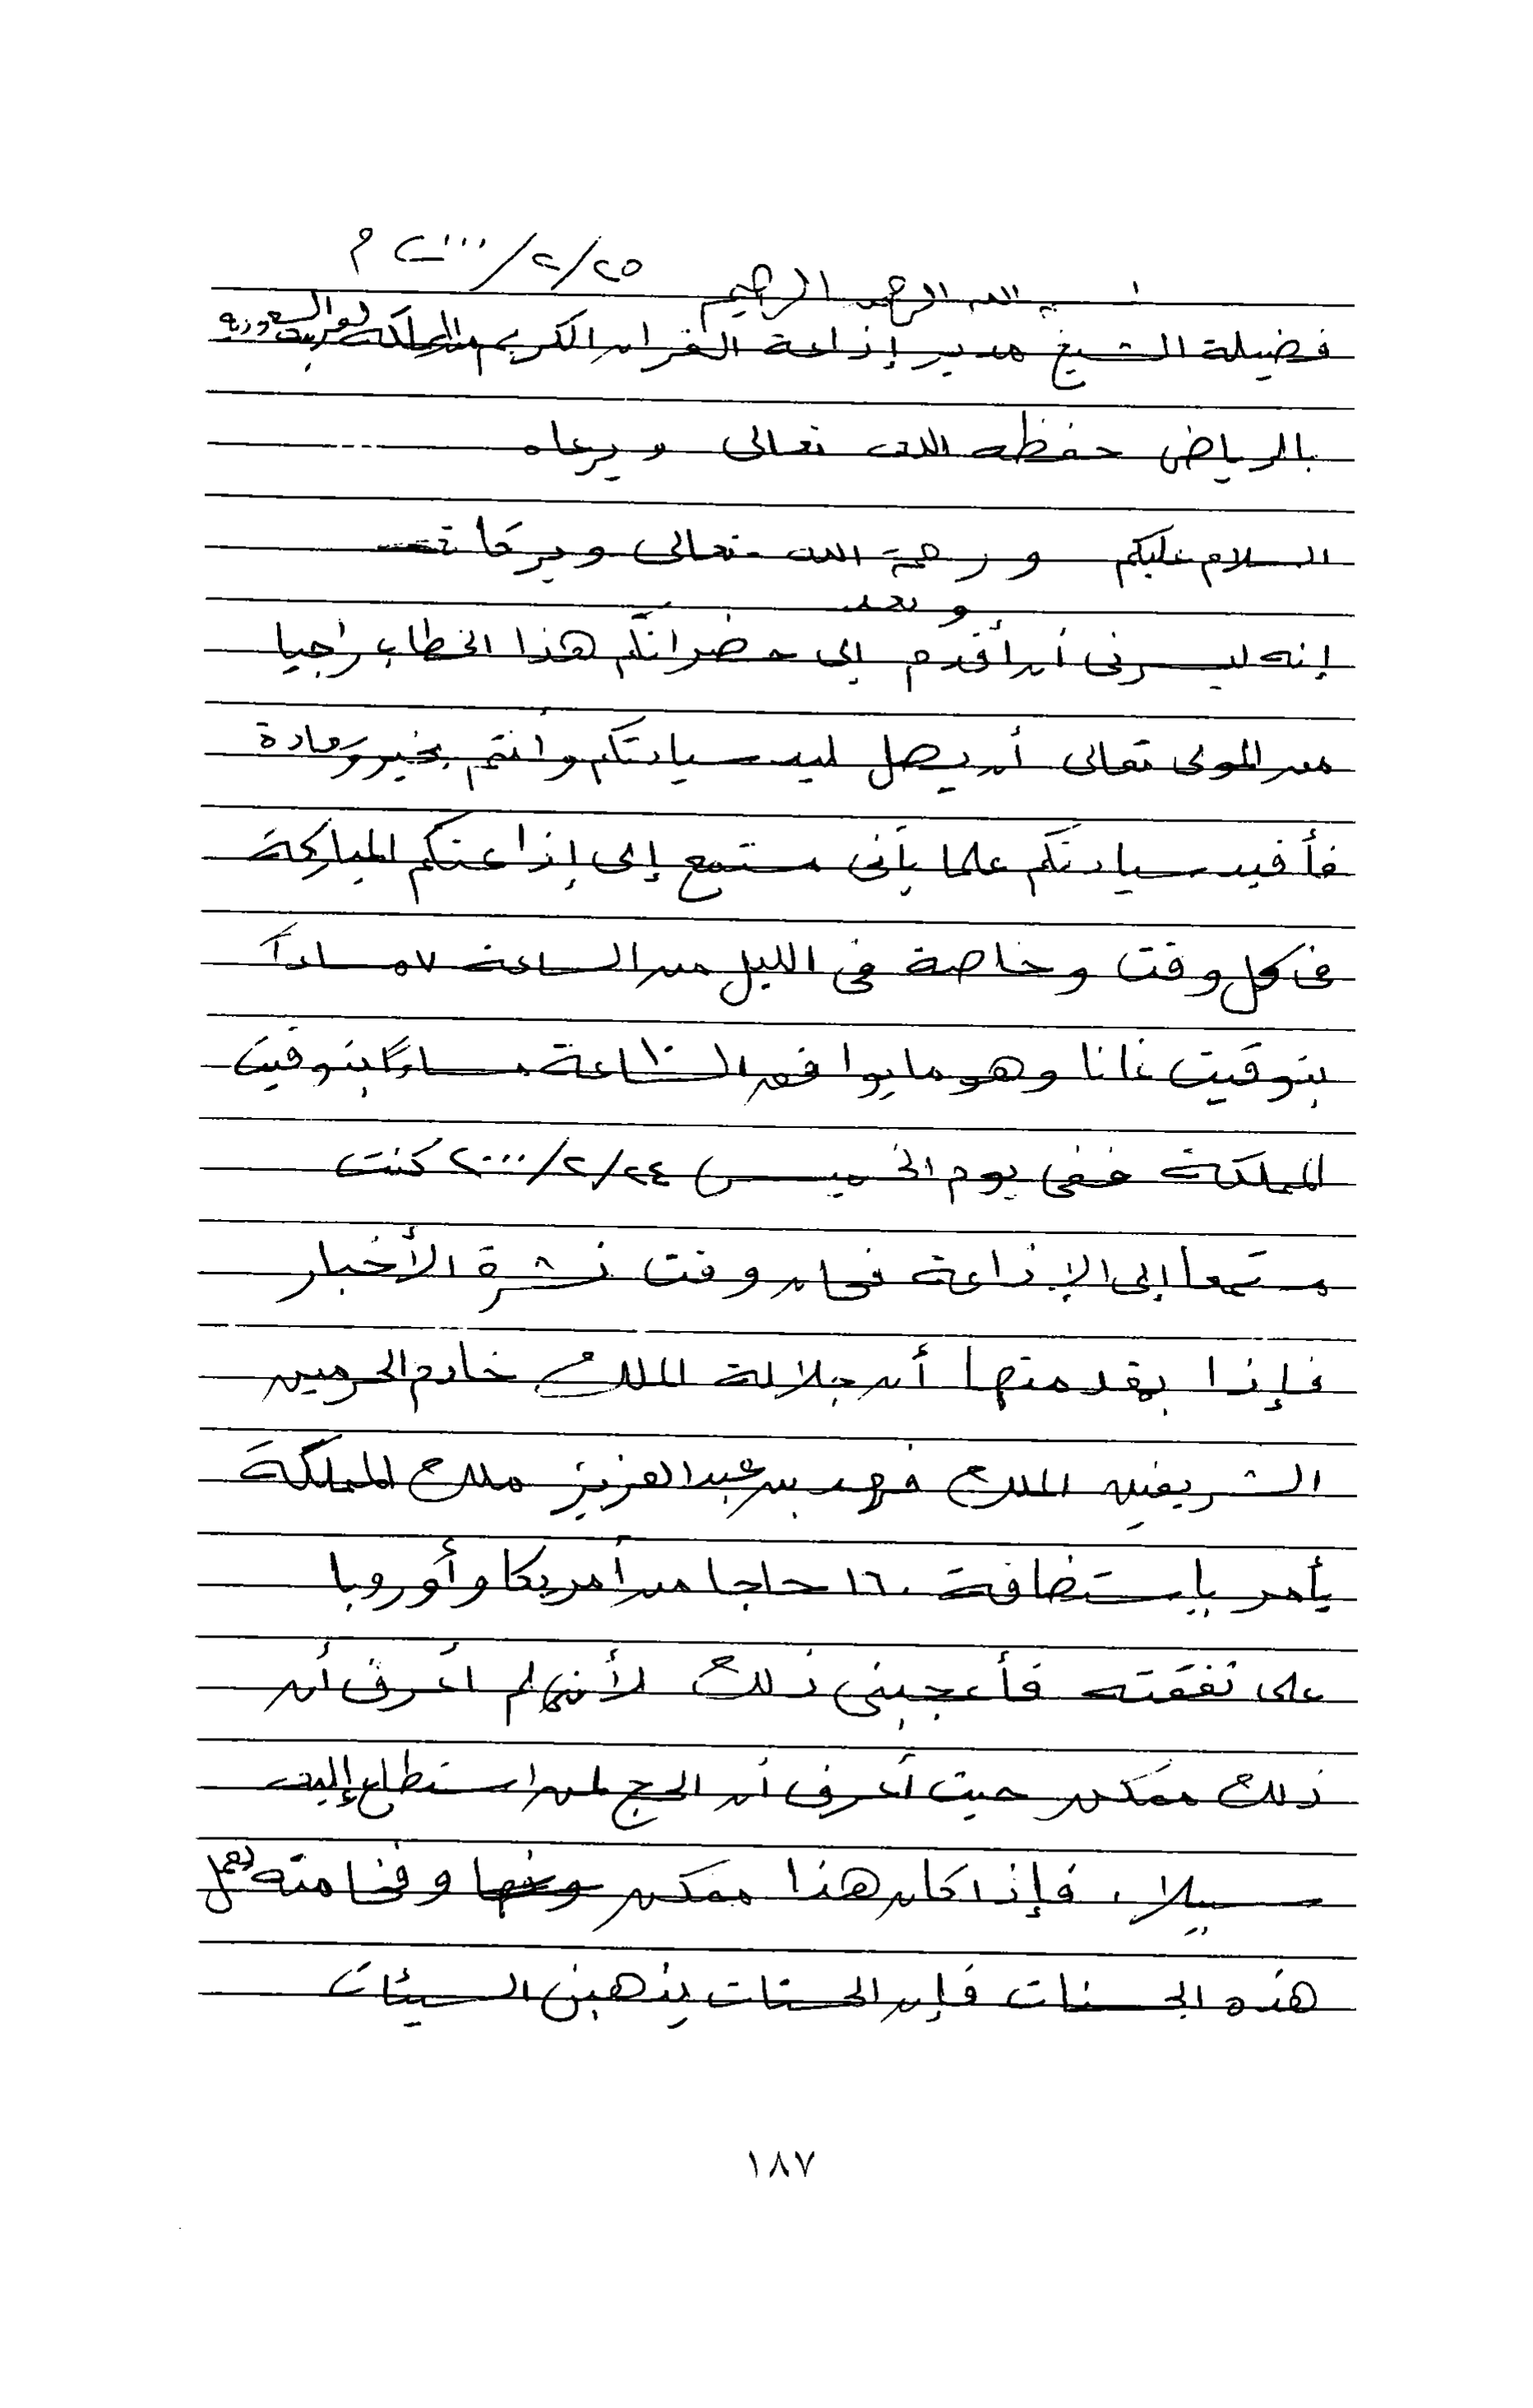 ٢٠٠٠/٢/٢٥ م
بسم الله الرحمن الرحيم
فضيلة الشيخ مدير إذاعة القرآن الكريم من المملكة العربية السعودية
بالرياض حفظه الله تعالى ويرعاه
السلام عليكم ورحمة الله تعالى وبركاته
وبعد
إنه ليسرني أن أقدم إلى حضراتكم هذا الخطاب راجيا
من المولى تعالى أن يصل ليد سيادتكم وأنتم بخير وسعادة
فأفيد سيادتكم علما بأنى مستمع إلى إذاعتكم المباركة
فى كل وقت وخاصة فى الليل من الساعة ٧ مساءاً
بتوقيت غانا وهو ما يوافق الساعة ١٠ مساءاً بتوقيت
المملكة ففى يوم الخميس ٢٠٠٠/٢/٢٤ كنت
مستمعا إلى الإذاعة فحان وقت نشرة الأخبار
فإذا بمقدمتها أن جلالة الملك خادم الحرمين
الشريفين الملك فهد بن عبد العزيز ملك المملكة
يأمر بإستضافة ١٦٠ حاجا من أمريكا وأوروبا
على نفقته فأعجبنى ذلك لأننى لم أعرف أن
ذلك ممكن حيث أعرف أن الحج لمن استطاع إليه
سبيلا، فإذا كان هذا ممكن وفخامته يعمل
هذه الحسنات فإن الحسنات يذهبن السيئات
١٨٧